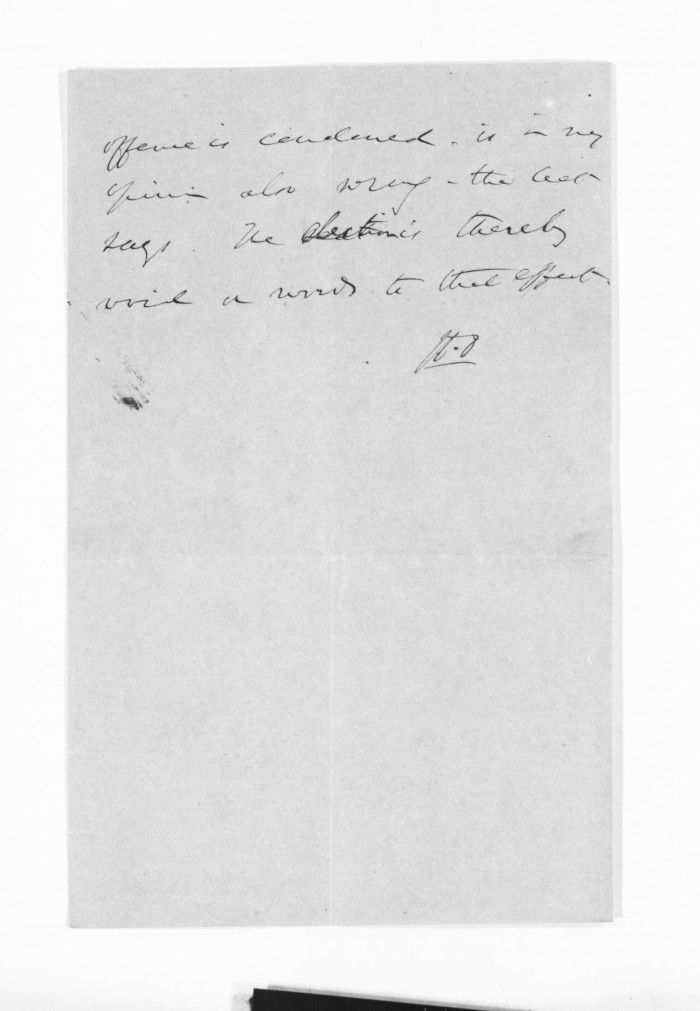 offence is condoned - is in my
opinion also wrong - the Act
says. The election is thereby
void or words to that effect.